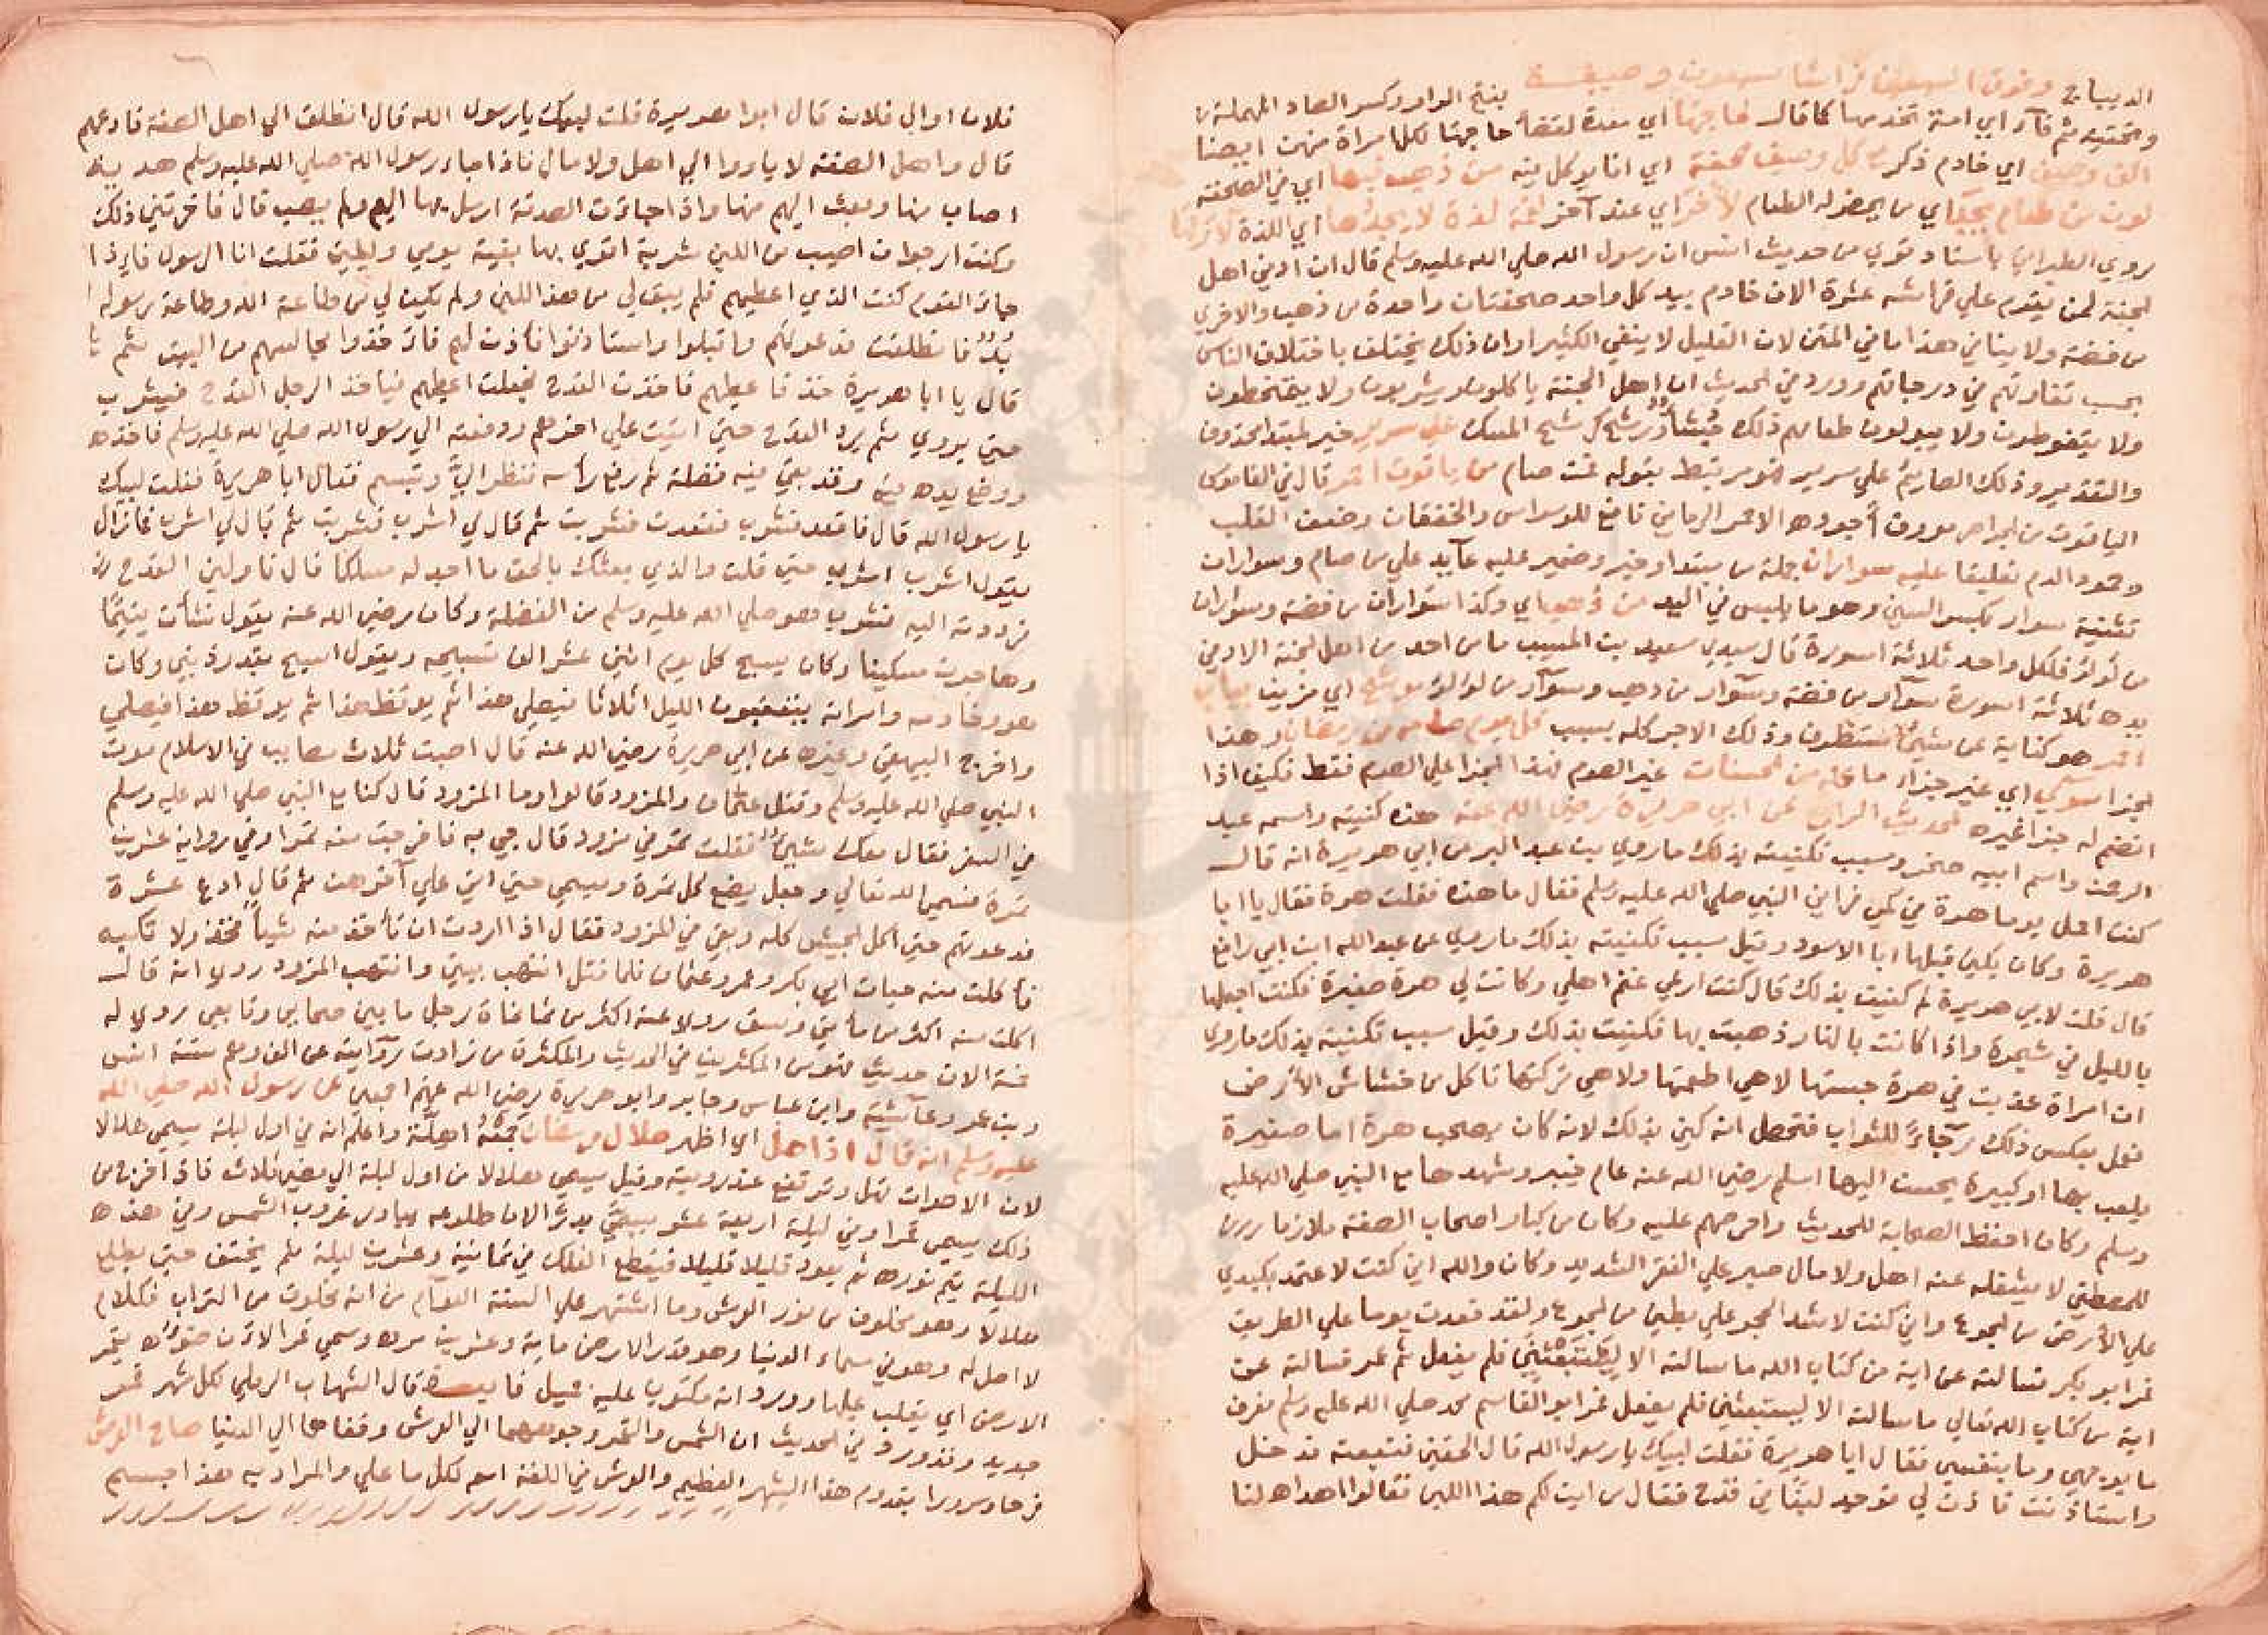 الديباج وفوق السبعين فراشا سبعون وصيفة بفتح الواو وكسر الصاد المهملة
وتحتية ثم فآء اي امة تخدمها كما قال لحاجتها اي معدة لقضآ حاجتها لكل امراة منهن ايضا
الف وصيف اي خادم ذكر مع كل وصيف صحفة اي انا يوكل فيه من ذهب فيها اي في الصحفة
لون من طعام يجد اي من يحضر له الطعام لآخر اي عند آخر لقمة لذة لا يجدها اي اللذة لاولها
روي الطبراني باسناد قوي من حديث انس ان رسول الله صلي الله عليه وسلم قال ان ادني اهل
الجنة لمن يقوم علي راسه عشرة الاف خادم بيد كل واحد صحفتان واحدة من ذهب والاخري
من فضة ولا ينافي هذا ما في المتن لان القليل لا ينفي الكثير او ان ذلك يختلف باختلاف الناس
بحسب تفاوتهم في درجاتهم وورد في الحديث ان اهل الجنة ياكلون ويشربون ولا يتمخطون
ولا يتغوطون ولا يبولون طعامهم ذلك جشآؤ ورشح كرشح المسك علي سرير خبر لمبتدا محذوف
والتقدير وذلك الصايم علي سرير يرتبط بقوله عن صام من ياقوت احمر قال في القاموس
الياقوت من الجواهر معروف أجوده الاحمر الرماني نافع للوسواس والخفقان وضعف القلب
وجمود الدم تعليقا عليه سواران جملة من مبتدا وخبر وضمير عليه عآيد علي من صام وسواران
تثنية سوار بكسر السين وهو ما يلبس في اليد من ذهب اي وكذا سواران من فضة وسواران
من لولؤ فلكل واحد ثلاثة اسورة قال سيدي سعيد بن المسيب ما من احد من اهل الجنة الا وفي
يده ثلاثة اسورة سوآر من فضة وسوآر من ذهب وسوآر من لولؤ موشح اي مزين بياقوت
احمر هو كناية عن شئ مستظرف وذلك الاجر كله بسبب كل يوم صامه من رمضان وهذا
الجزا سوي اي غير جزاء ما عمله من الحسنات غير الصوم لهذا الجزا علي الصوم فقط فكيف اذا
انضم له جزا غيره الحديث الرابع عن ابي هريرة رضي الله عنه هذه كنيته واسمه عبد
الرحمن واسم ابيه صخر وسبب تكنيته بذلك ما روي بن عبد البر عن ابي هريرة انه قال
كنت احمل يوما هرة في كمي فراني النبي صلي الله عليه وسلم فقال ما هذه فقلت هرة فقال يا ابا
هريرة وكان يكني قبلها ابا الاسود وقيل سبب تكنيته بذلك ما روي عن عبد الله ابن ابي رافع
قال قلت لابي هريرة لم كنيت بذلك قال كنت ارعي غنم اهلي وكانت لي هرة صغيرة فكنت اجعلها
بالليل في شجرة واذا كانت بالنهار ذهبت بها فكنيت بذلك وقيل سبب تكنيته بذلك ما روي
ان امراة عذبت في هرة حبستها لا هي اطعمتها ولا هي تركتها تاكل من خشاش الأرض
فعمل بعكس ذلك رجآءً للثواب فتحصل انه كني بذلك لانه كان يصحب هرة اما صغيرة
يلعب بها او كبيرة يحسن اليها اسلم رضي الله عنه عام خيبر وشهدها مع النبي صلي الله عليه
وسلم وكان احفظ الصحابة للحديث واحرصهم عليه وكان من كبار اصحاب الصفة ملازما
للمصطفي لا يشغله عنه اهل ولا مال صبر علي الفقر الشديد وكان والله اني كنت لاعتمد بكبدي
علي الأرض من الجوع واني كنت لاشد الحجر علي بطني من الجوع ولقد قعدت يوما علي الطريق
فمر ابو بكر فسالته عن اية من كتاب الله ما سالته الا ليستتبعني فلم يفعل ثم عمر فسالته عن
اية من كتاب الله تعالي ما سالته الا ليستتبعني فلم يفعل فمر ابو القاسم محمد صلي الله عليه وسلم فعرف
ما بوجهي وما بنفسي فقال ابا هريرة فقلت لبيك يارسول الله قال الحقني فتبعته فدخل
واستاذنت فاذن لي فوجد لبنًا في قدح فقال من اين لكم هذا اللبن فقالوا اهداه لنا
فلان او ال فلان قال ابا هريرة قلت لبيك يارسول الله قال انطلق الي اهل الصفة فادعهم
قال واهل الصفة لا ياووا الي اهل ولا مال فاذا جاء رسول الله صلي الله عليه وسلم هدية
اصاب منها وبعث اليهم منها واذا جاءت الصدقة ارسل بها اليهم ولم يصب قال فاحزنني ذلك
وكنت ارجوا ان اصيب من اللبن شربة اتقوي بها بقية يومي وليلتي فقلت انا الرسول فاذا
جاء القوم كنت الذي اعطيهم فلم يبق لي من هذا اللبن ولم يكن لي من طاعة الله وطاعة رسوله
بُدٌّ فانطلقت فدعوتهم فاقبلوا واستاذنوا فاذن لهم فاخذوا مجالسهم من البيت ثم
قال يا ابا هريرة خذ فاعطهم فاخذت القدح فجعلت اعطيهم فياخذ الرجل القدح فيشرب
حتي يروي ثم يرد القدح حتي اتيت علي اخرهم ودفعته الي رسول الله صلي الله عليه وسلم فاخذه
ووضع يده فيه وقد بقي فيه فضلة ثم رفع راسه فنظر اليَّ وتبسم فقال ابا هريرة فقلت لبيك
يارسول الله قال فاقعد فاشرب فقعدت فشربت ثم قال لي اشرب فشربت ثم قال لي اشرب فما زال
يقول اشرب اشرب حتي قلت والذي بعثك بالحق ما اجد له مسلكا قال ناولني القدح
فرددته اليه فشرب وهو صلي الله عليه وسلم من الفضلة وكان رضي الله عنه يقول نشأت يتيمًا
وهاجرت مسكينا وكان يسبح كل يوم اثني عشر الف تسبيحه ويقول اسبح بقدر ذنبي وكان
هو وخادمه وامراته يتعقبون الليل اثلاثا فيصلي هذا ثم يوقظ هذا ثم يوقظ هذا فيصلي
واخرج البيهقي وغيره عن ابي هريرة رضي الله عنه قال اصبت ثلاث مصايب في الاسلام موت
النبي صلي الله عليه وسلم وقتل عثمان والمزود قالوا وما المزود قال كنا مع النبي صلي الله عليه وسلم
في السفر فقال معك شئ فقلت تمر في مزود قال جي به فاخرجت منه تمرا وفي رواية عشرين
تمرة فسمي الله تعالي وجعل يضع كل تمرة ويسمي حتي اتي علي آخرهن ثم قال ادع عشرة
فدعوتهم حتي أكل الجيش كله وبقي في المزود فقال اذا اردت ان تأخذ منه شيأ فخذ ولا تكبه
فأكلت منه حيات ابي بكر وعمر وعثمان فلما قتل انتهب بيتي وانتهب المزود روي انه قال
اكلت منه اكثر من مأتي وسق روي عنه اكثر من ثمانماة رجل ما بين صحابي وتابعي روي له
خمسة الاف حديث فهو من المكثرين في الحديث والمكثرون من زادت روآيته عن الف وهم ستة انس
وبن عمر وعآئشة وابن عباس وجابر وابو هريرة رضي الله عنهم اجمعين عن رسول الله صلي الله
عليه وسلم انه قال اذا اهل اي اظهر هلال رمضان جمعه اهلّة واعلم انه في اول ليلة يسمي هلالا
لان الاصوات تهل وترتفع عند رويته وقيل يسمي هلالا من اول ليلة الي مضي ثلاث فاذا خرج من
ذلك يسمي قمرا وفي ليلة اربعة عشر يسمَّي بدرًا لان طلوعه يبادر غروب الشمس وفي هذه
الليلة يتم نوره ثم يعود قليلا قليلا فيقطع الفلك في ثمانية وعشرين ليلة ثم يختفي حتي يطلع
هلالا وهو مخلوق من نور العرش وما اشتهر علي السنة العوآم من انه مخلوق من التراب فكلام
لا اصل له وهو في سماء الدنيا وهو قدر الارض ماية وعشرين مرة وسمي قمرا لان ضوءه يقمر
الارض اي يغلب عليها وورد انه مكتوب عليه فايدة قال الشهاب الرملي لكل شهر قمر
جديد وقد ورد في الحديث ان الشمس والقمر وجوههما الي العرش وقفاهما الي الدنيا صاح العرش
فرحا وسرورا بقدوم هذا الشهر العظيم والعرش في اللغة اسم لكل ما علي والمراد به هذا جسيم